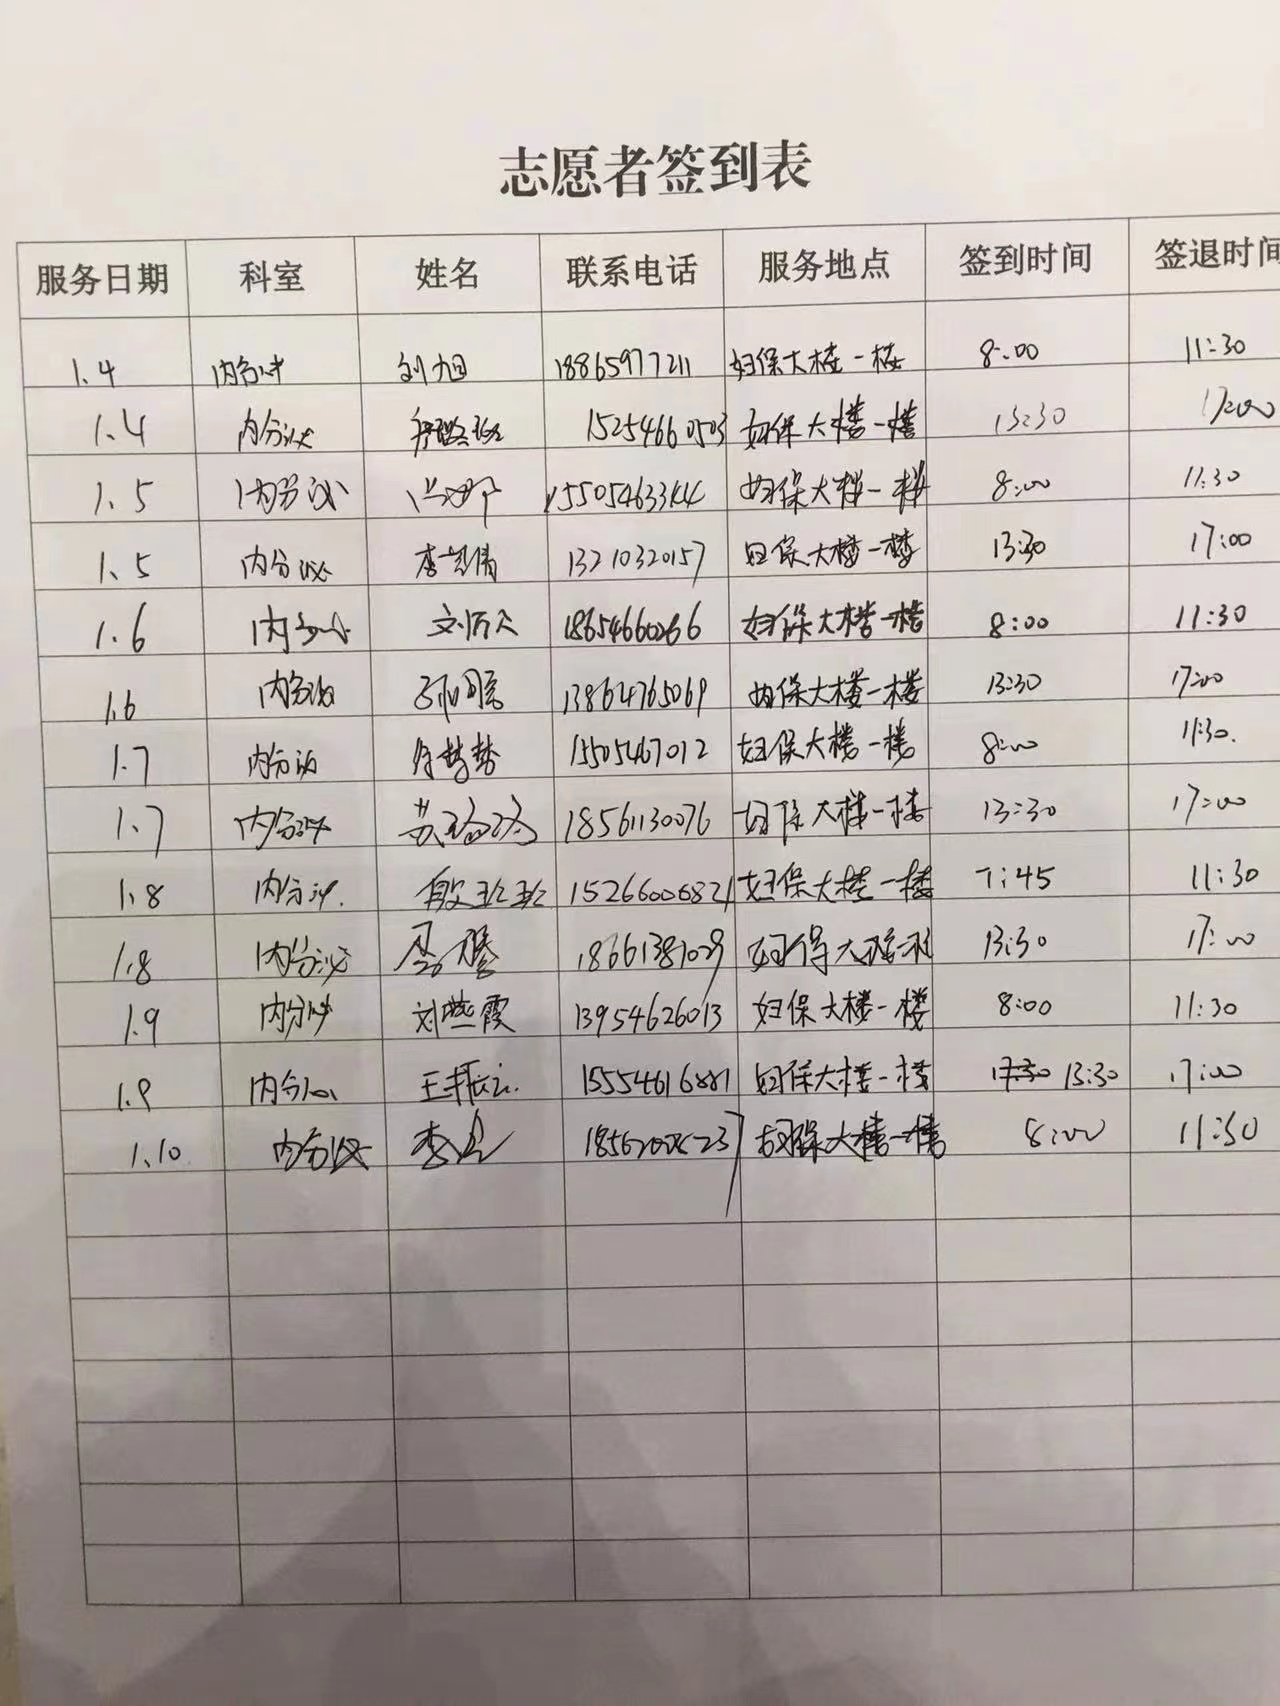 志愿者签到表
服务日期 科室 姓名 联系电话 服务地点 签到时间 签退时间
1.4 内分泌 刘旭 18865977211 妇保大楼一楼 8:00 11:30
1.4 内分泌 15254660503 妇保大楼一楼 13:30 17:00
1.5 内分泌 妇保大楼一楼 8:00 11:30
1.5 内分泌 13210320157 妇保大楼一楼 13:30 17:00
1.6 内分泌 18654660266 妇保大楼一楼 8:00 11:30
1.6 内分泌 13864765069 妇保大楼一楼 13:30 17:00
1.7 内分泌 15505467012 妇保大楼一楼 8:00 11:30.
1.7 内分泌 18561130076 妇保大楼一楼 13:30 17:00
1.8 内分泌. 殷珏珏 15266006821 妇保大楼一楼 7:45 11:30
1.8 内分泌 18661381029 妇保大楼一楼 13:30 17:00
1.9 内分泌 刘燕霞 13954626013 妇保大楼一楼 8:00 11:30
1.9 内分泌 妇保大楼一楼 13:30 17:00
1.10 内分泌 妇保大楼一楼 8:00 11:30